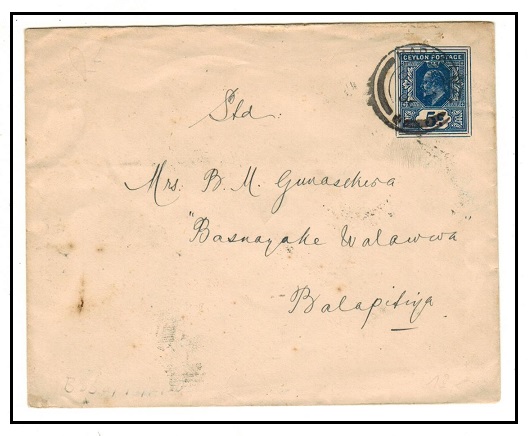 CEYLON POSTAGE
5c
Std
Mrs. B. M. Gunasekera
"Basnayake Walawwa"
Balapitiya